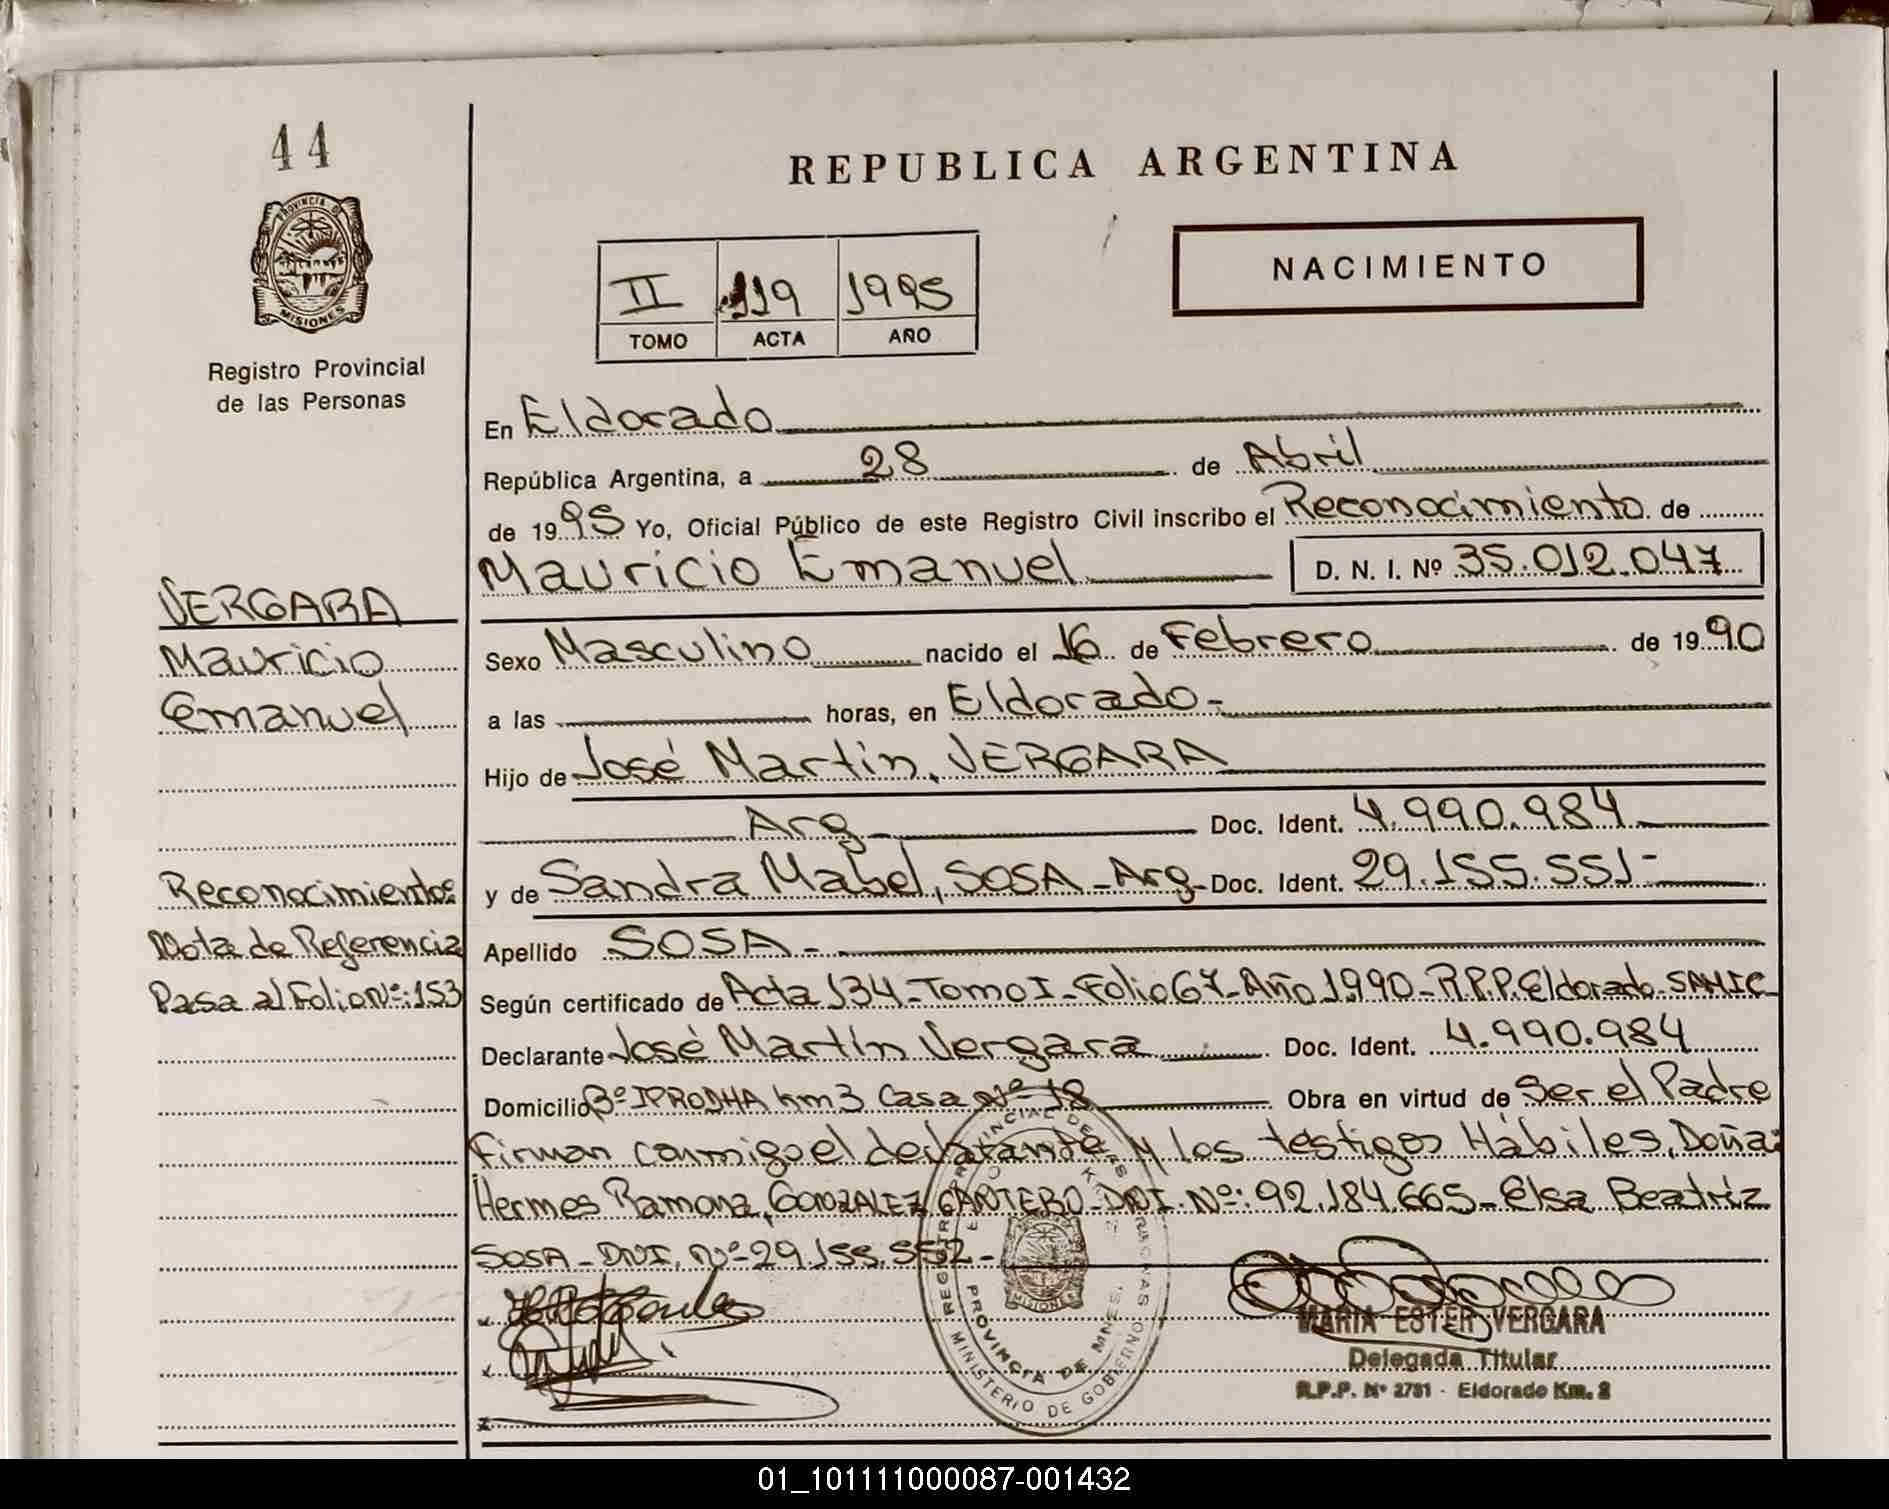 44
PROVINCIA DE
MISIONES
Registro Provincial
de las Personas
REPUBLICA ARGENTINA
NACIMIENTO
II 119 1995
TOMO ACTA AÑO
En Eldorado
República Argentina, a 28 de Abril
de 1995 Yo, Oficial Público de este Registro Civil inscribo el Reconocimiento de
Mauricio Emanuel D. N. I. Nº 35.012.047
VERGARA
Mauricio
Emanuel
Sexo Masculino nacido el 16 de Febrero de 1990
a las horas, en Eldorado-
Hijo de José Martín, VERGARA
Arg Doc. Ident. 4.990.984
y de Sandra Mabel, SOSA - Arg - Doc. Ident. 29.155.551-
Reconocimientos
Nota de Referencia
Pasa al Folio Nº: 153
Apellido SOSA -
Según certificado de Acta 134 - Tomo I - Folio 67 - Año 1990 - R.P.P. Eldorado - SAMIC
Declarante José Martín Vergara Doc. Ident. 4.990.984
Domicilio Bº IPRODHA km 3 Casa Nº 18 Obra en virtud de Ser el Padre
Firman conmigo el declarante y los testigos Hábiles, Doña:
Hermes Ramona, GONZALEZ CANTERO - DNI. Nº: 92.184.665 - Elsa Beatriz
SOSA - DNI. Nº 29.155.552 -
MINISTERIO DE GOBIERNO
PROVINCIA DE MNES.
MISIONES
MARIA ESTER VERGARA
Delegada Titular
R.P.P. Nº 2731 - Eldorado Km. 2
01_101111000087-001432